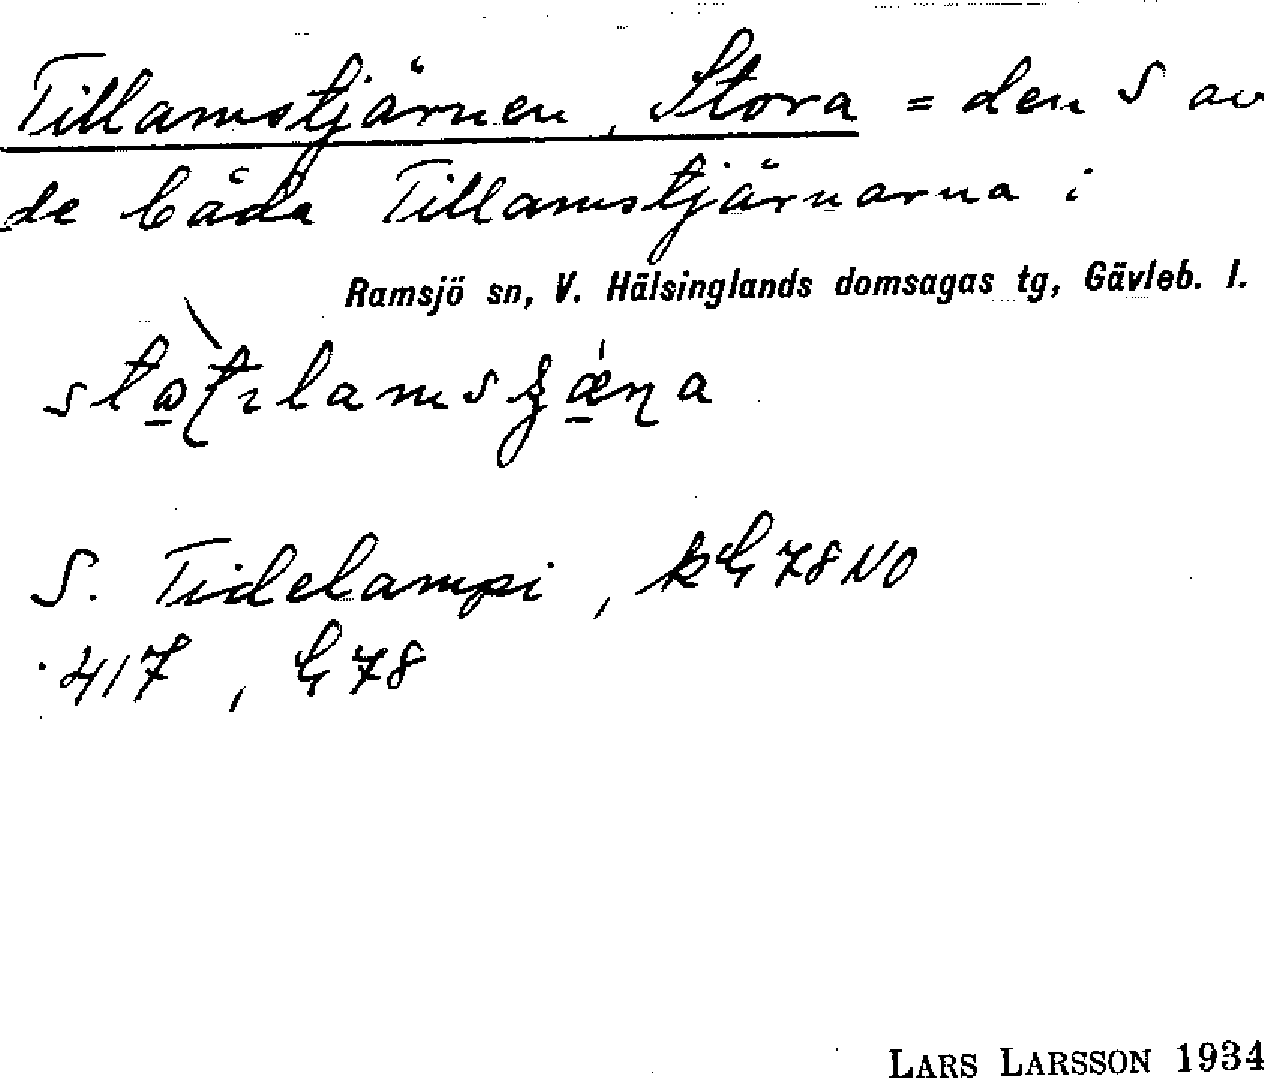 Tillamstjärnen, Stora = den S av
de båda Tillamstjärnarna i
Ramsjö sn, V. Hälsinglands domsagas tg, Gävleb. l.
S. Tidelampi, kG 78 NO
417, G 78
LARS LARSSON 1934